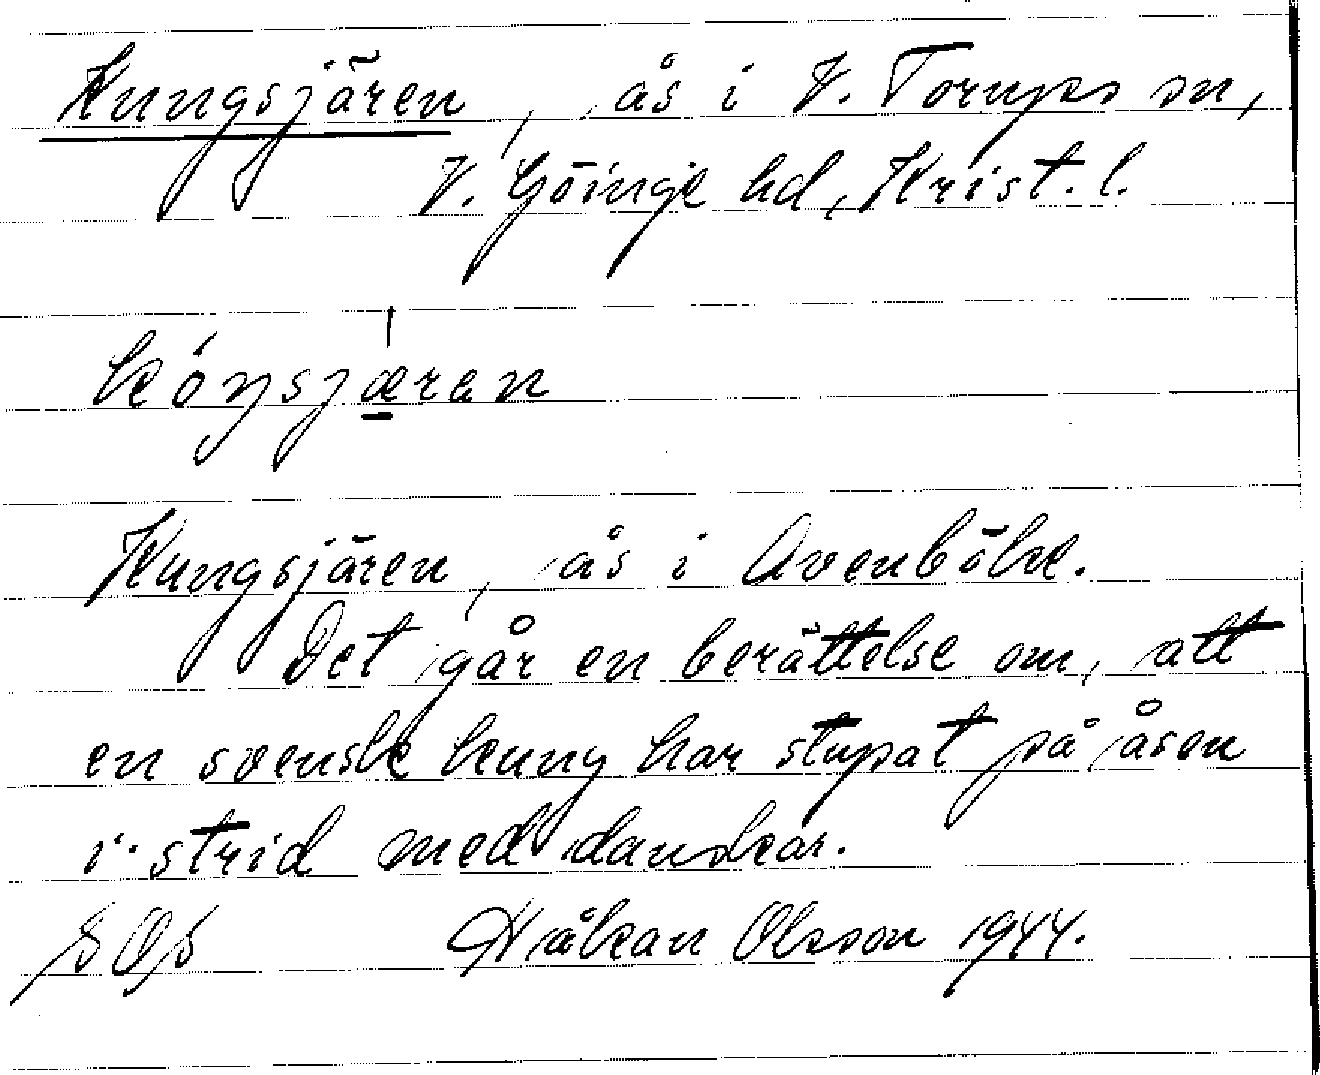 Kungsjären, ås i V. Torups sn,
V. Göinge hd, Krist. l.
kóŋsjæran
Kungsjären, ås i Avenböke.
Det går en berättelse om, att
en svensk kung har stupat på åsen
i strid med danskar.
Håkan Olsson 1944.